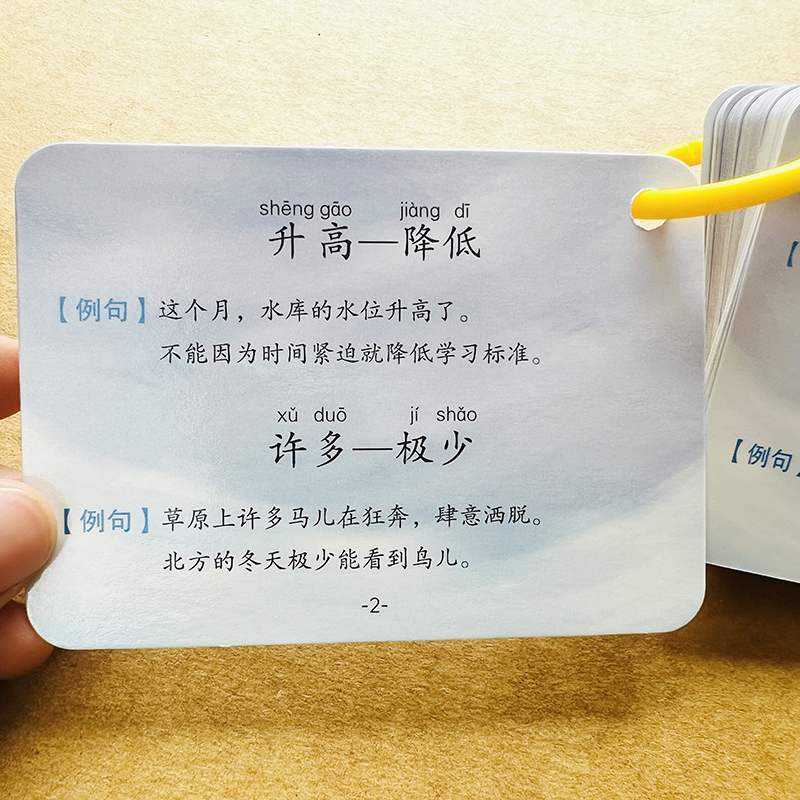 shēng gāo jiàng dī
升高—降低
【例句】这个月，水库的水位升高了。
不能因为时间紧迫就降低学习标准。
xǔ duō jí shǎo
许多—极少
【例句】草原上许多马儿在狂奔，肆意洒脱。
北方的冬天极少能看到鸟儿。
-2-
【
【例句】